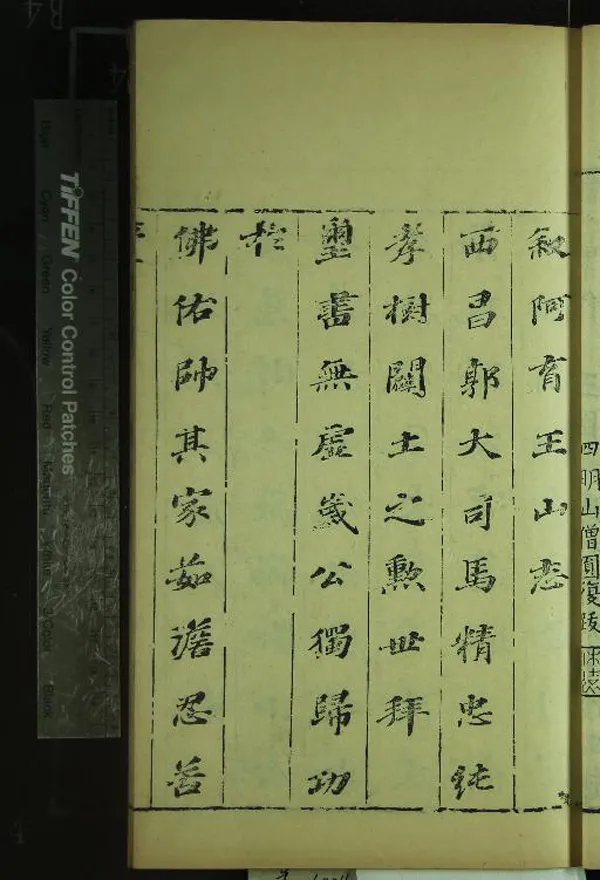 四明山僧圓復跋
叙阿育王山志
西昌郭大司馬精忠純
孝樹闢土之勲世拜
璽書無虛歲公獨歸功
於
佛佑帥其家茹澹忍苦
TIFFEN Color Control Patches
Cyan Green Yellow Red Magenta
Black